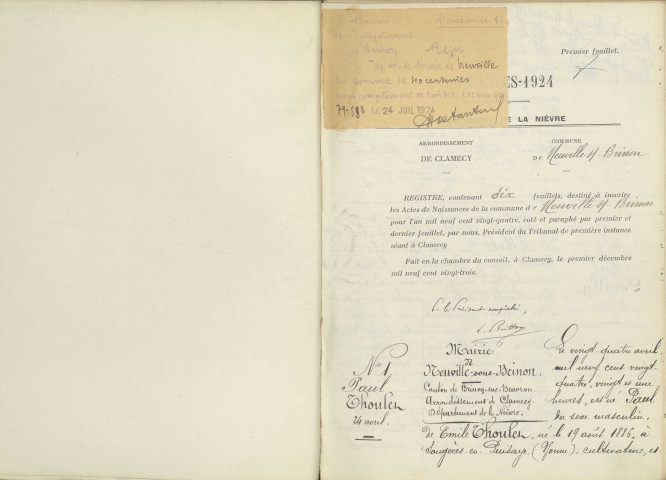 Premier feuillet.
de Brinon
Reçu
de Neuville
la somme de 40 centimes
71-593 le 24 JUIL 1924
ES-1924
E LA NIÈVRE
ARRONDISSEMENT
DE CLAMECY
COMMUNE
DE Neuville s/-Brinon
REGISTRE, contenant six feuillets, destiné à inscrire
les Actes de Naissances de la commune de Neuville s/ Brinon
pour l'an mil neuf cent vingt-quatre, coté et paraphé par premier et
dernier feuillet, par nous, Président du Tribunal de première instance
séant à Clamecy
Fait en la chambre du conseil, à Clamecy, le premier décembre
mil neuf cent vingt-trois.
P. le Président empêché,
N° 1
Paul
Thoulen
24 avril.
Mairie
de
Neuville-sous-Brinon.
Canton de Brinon-sur-Beuvron
Arrondissement de Clamecy
Département de la Nièvre.
Le vingt-quatre avril
mil neuf cent vingt-
quatre, vingt et une
heures, est né Paul
du sexe masculin,
de Emile Thoulen, né le 19 août 1886, à
Fougères-en-Puisaye (Yonne), cultivateur, et